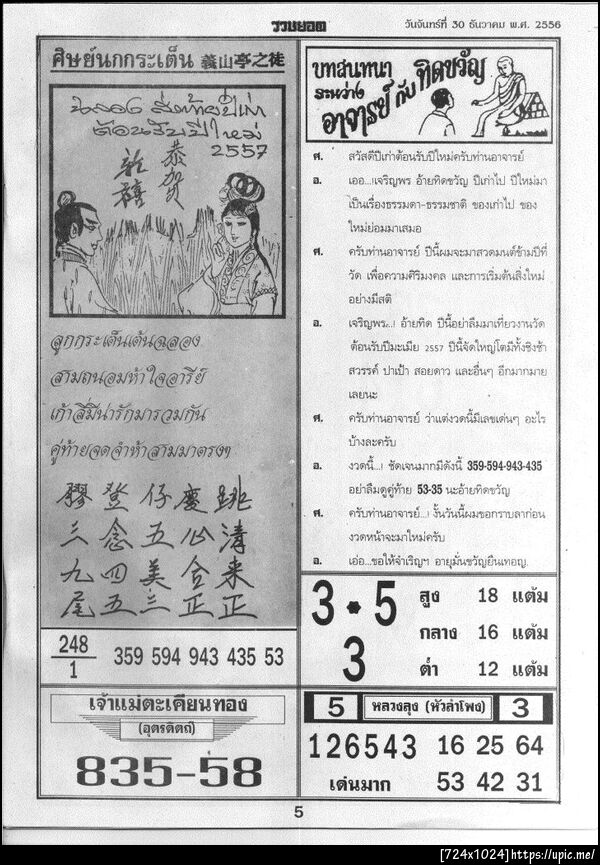 รวยยอด
วันจันทร์ที่ 30 ธันวาคม พ.ศ. 2556
ศิษย์นกกระเต็น 義山亭之徒
ฉลอง ส่งท้ายปีเก่า
ต้อนรับปีใหม่
2557
恭賀
新禧
ลูกกระเต็นเต้นฉลอง
สามถนอมห้าใจอารีย์
เก้าสี่มีน่ารักมารวมกัน
คู่ท้ายจดจำห้าสามมาตรงๆ
膠 登 仔 慶 跳
三 念 五 心 清
九 四 美 合 来
尾 五 三 正 正
248
1
359 594 943 435 53
เจ้าแม่ตะเคียนทอง
(อุตรดิตถ์)
835-58
บทสนทนา
ระหว่าง
อาจารย์ กับ ทิดขวัญ
ศ. สวัสดีปีเก่าต้อนรับปีใหม่ครับท่านอาจารย์
อ. เออ...!เจริญพร อ้ายทิดขวัญ ปีเก่าไป ปีใหม่มา
เป็นเรื่องธรรมดา-ธรรมชาติ ของเก่าไป ของ
ใหม่ย่อมมาเสมอ
ศ. ครับท่านอาจารย์ ปีนี้ผมจะมาสวดมนต์ข้ามปีที่
วัด เพื่อความศิริมงคล และการเริ่มต้นสิ่งใหม่
อย่างมีสติ
อ. เจริญพร..! อ้ายทิด ปีนี้อย่าลืมมาเที่ยวงานวัด
ต้อนรับปีมะเมีย 2557 ปีนี้จัดใหญ่โตมีทั้งชิงช้า
สวรรค์ ปาเป้า สอยดาว และอื่นๆ อีกมากมาย
เลยนะ
ศ. ครับท่านอาจารย์ ว่าแต่งวดนี้มีเลขเด่นๆ อะไร
บ้างละครับ
อ. งวดนี้...! ชัดเจนมากมีดังนี้ 359-594-943-435
อย่าลืมดูคู่ท้าย 53-35 นะอ้ายทิดขวัญ
ศ. ครับท่านอาจารย์...! งั้นวันนี้ผมขอกราบลาก่อน
งวดหน้าจะมาใหม่ครับ
อ. เอ่อ...ขอให้จำเริญฯ อายุมั่นขวัญยืนเทอญ.
3 * 5
3
สูง 18 แต้ม
กลาง 16 แต้ม
ต่ำ 12 แต้ม
5 หลวงลุง (หัวลำโพง) 3
126543 16 25 64
เด่นมาก 53 42 31
5
[724x1024]https://upic.me/